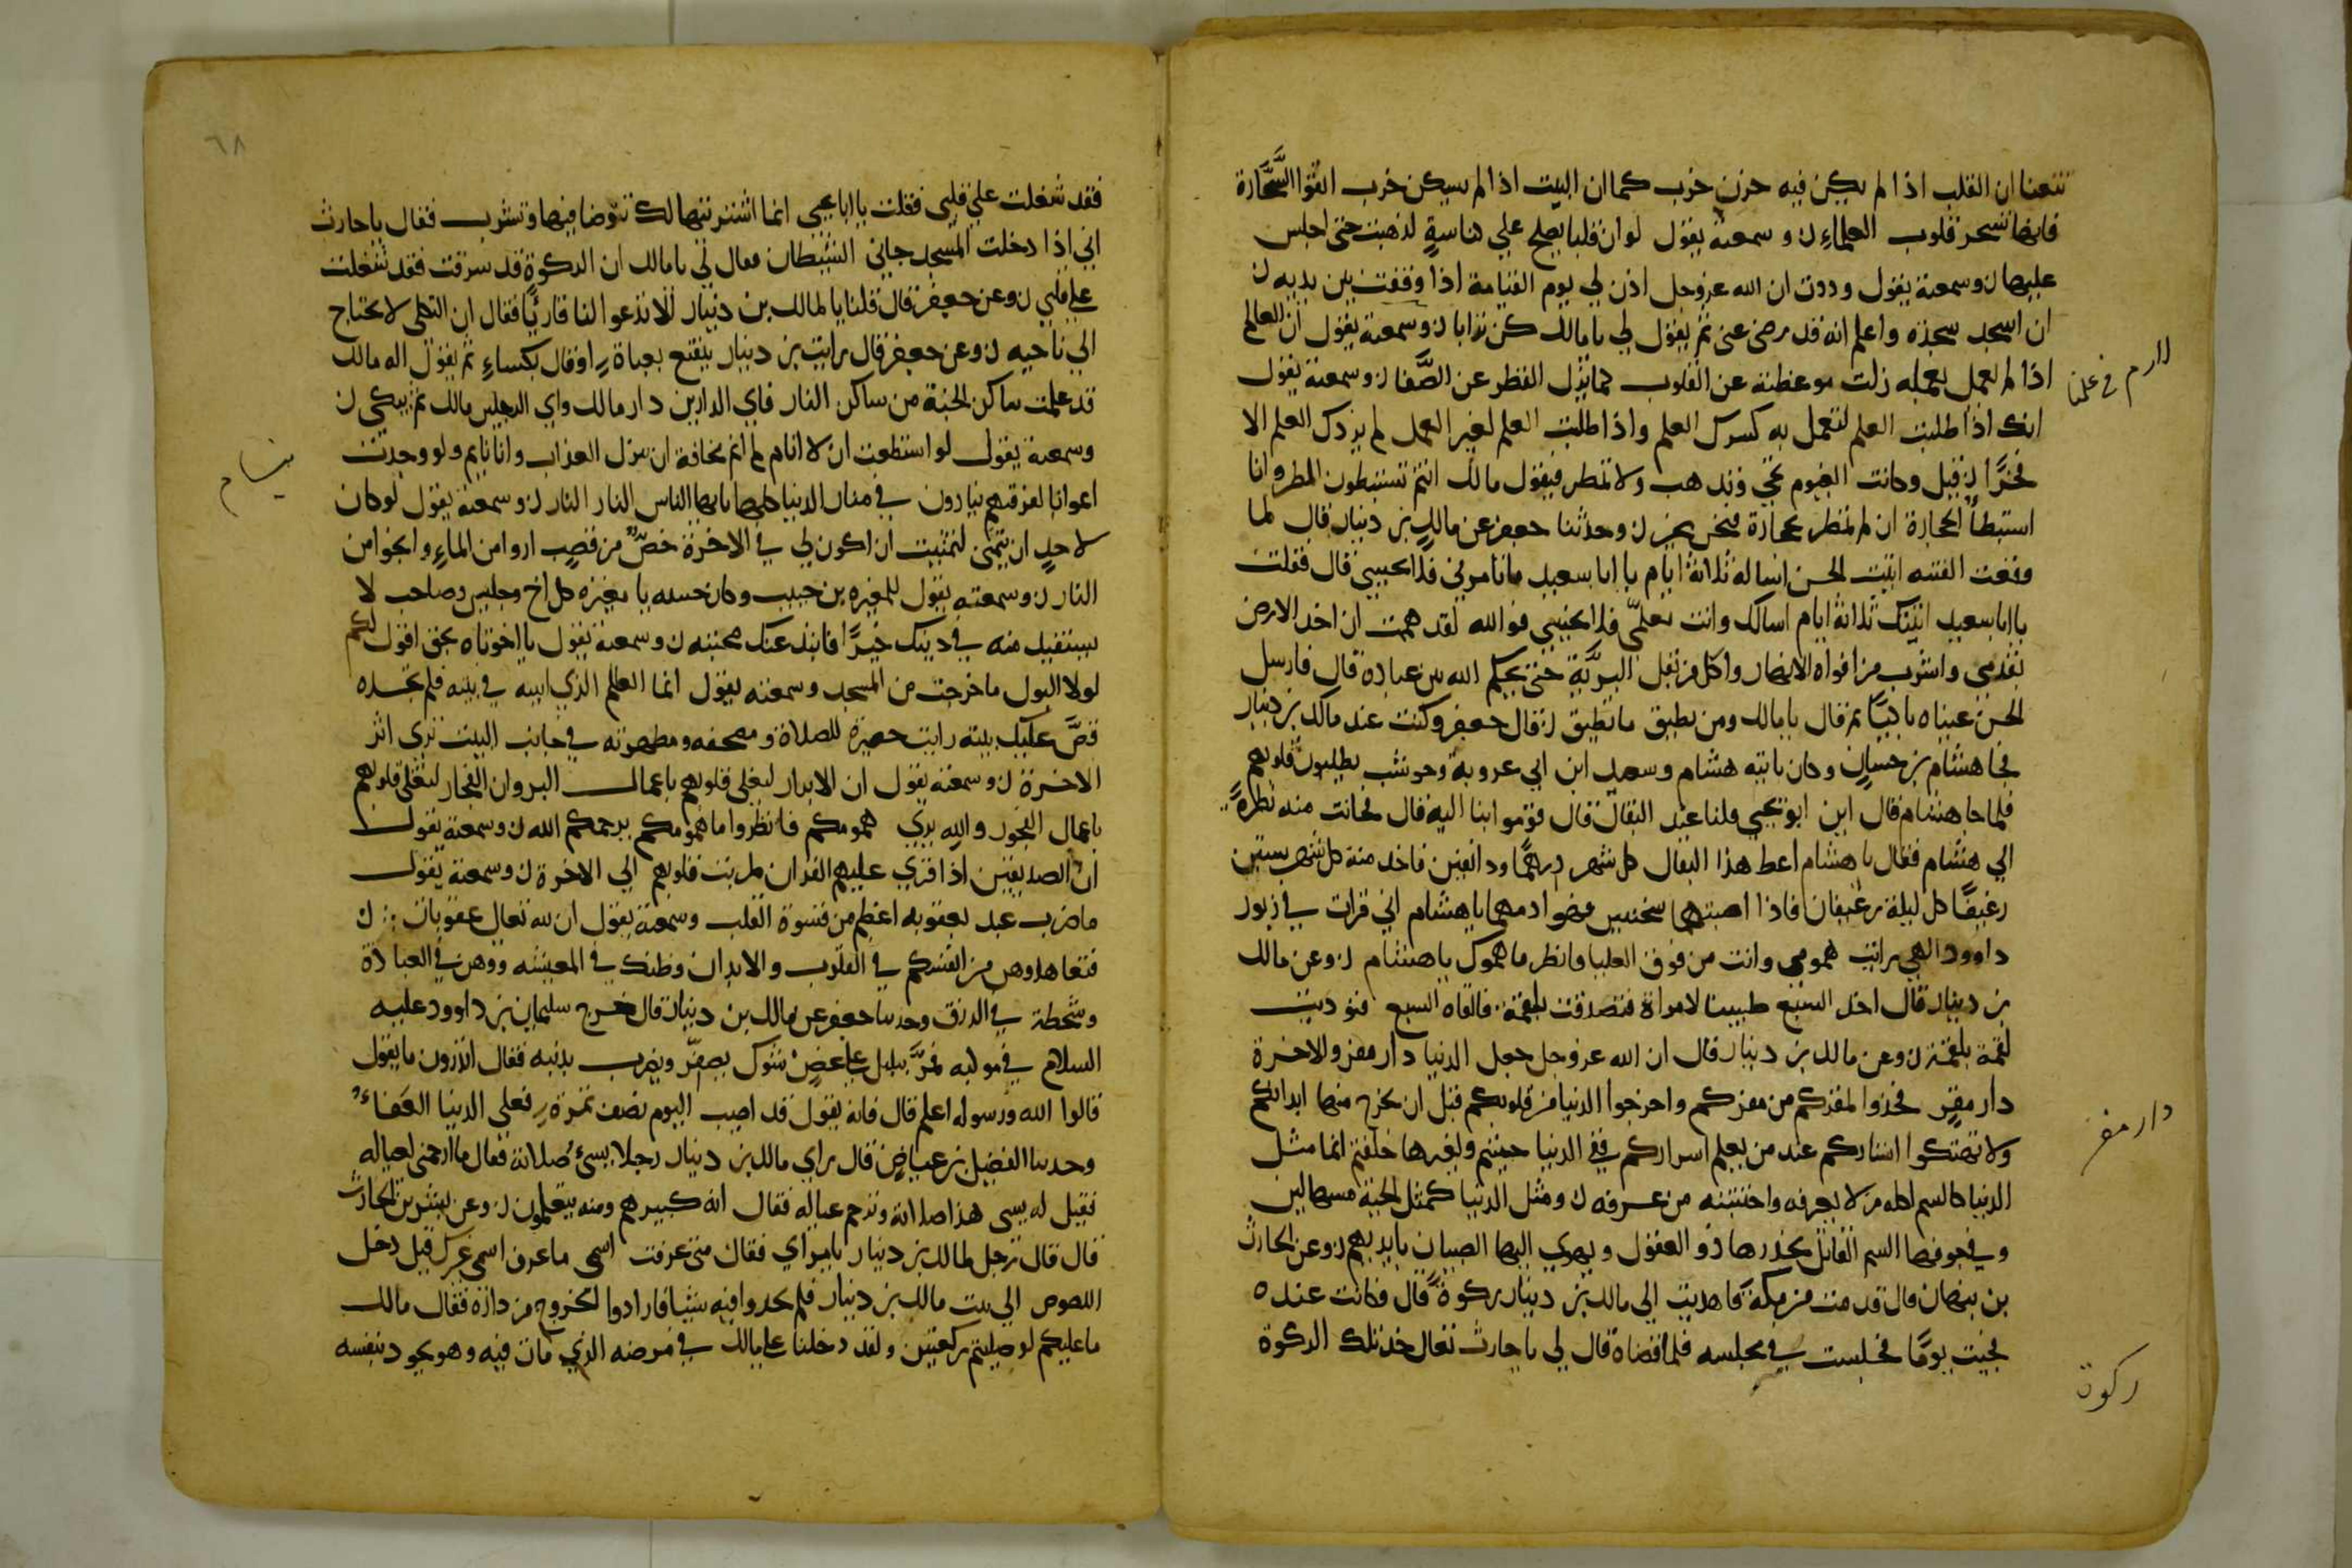 ان القلب اذا لم يكن فيه حزن خرب كما ان البيت اذا لم يسكن خرب اتقوا السَّحَّارة
فانها تسحر قلوب العلماء ن وسمعته يقول لو ان قلبا يصلح علي كناسةٍ لذهبت حتى اجلس
عليها ن وسمعته يقول وددت ان الله عز وجل اذن لي يوم القيامة اذا وقفت بين يديه ن
ان اسجد سجدة واعلم انه قد رضى عنى ثم يقول لي يا مالك كن ترابا ن وسمعته يقول ان العالم
اذا لم يعمل بعلمه زلت موعظته عن القلوب كما يزل القطر عن الصَّفا ن وسمعته يقول
انك اذا طلبت العلم لتعمل به كسرك العلم واذا طلبت العلم لغير العمل لم يزدك العلم الا
فخرًا ن قيل وكانت الغيوم تجي وتذهب ولا تمطر فيقول مالك انتم تستبطون المطر وانا
استبطأ الحجارة ان لم تمطر حجارة فنحن بخير ن وحدثنا جعفر عن مالك بن دينار قال لما
وقعت الفتنه اتيت الحسن اساله ثلاثة ايام يا ابا سعيد ما تامرني فلا يجيبني قال فقلت
يا ابا سعيد اتيتك ثلاثة ايام اسالك وانت معلمي فلا تجيبني فو الله لقد هممت ان اخذ الارض
بقدمي واشرب من افواه الانهار واكل من بقل البرِّيَّة حتى يحكم الله بين عباده قال فارسل
الحسن عيناه باكيًا ثم قال يا مالك ومن يطيق ما تطيق ن قال جعفر وكنت عند مالك بن دينار
فجا هشام بن حسان وكان ياتيه هشام وسعيد ابن ابي عروبة وحوشب يطلبون قلوبهم
فلما جا هشام قال اين ابو يحيي قلنا عند البقال قال قوموا بنا اليه قال فحانت منه نظرةً
الي هشام فقال يا هشام اعط هذا البقال كل شهر درهمًا ودانقين فاخذ منه كل شهر ستين
رغيفًا كل ليلة رغيفان فاذا اصبتهما سخنين فهو ادمهما يا هشام اني قرات في زبور
داوود الهي رايت همومى وانت من فوق العليا فانظر ما همومك يا هشام ن وعن مالك
بن دينار قال اخذ السبع صبيا لامراة فتصدقت بلقمة فالقاه السبع فنوديت
لقمة بلقمة ن وعن مالك بن دينار قال ان الله عز وجل جعل الدنيا دار مفر والاخرة
دار مقرٍ فخذوا لمقركم من مفركم واخرجوا الدنيا من قلوبكم قبل ان يخرج منها ابدانكم
ولا تهتكوا استاركم عند من يعلم اسراركم ففي الدنيا حييتم ولغيرها خلقتم انما مثل
الدنيا كالسم اكله من لا يعرفه واجتنبه من عرفه ن ومثل الدنيا كمثل الحية مسها لين
وفي جوفها السم القاتل يحذرها ذو العقول ويهوي اليها الصبيان بايديهم ن وعن الحارث
بن نبهان قال قدمت من مكة فاهديت الى مالك بن دينار ركوةً قال فكانت عنده
فجيت يومًا فجلست في مجلسه فلما قضاه قال لي يا حارث تعال خذ تلك الركوة
دار مفر
ركوة
٦٨
فقد شغلت علي قلبي فقلت يا ابا يحيى انما اشتريتها لك تتوضا فيها وتشرب فقال يا حارث
اني اذا دخلت المسجد جاني الشيطان فقال لي يا مالك ان الركوة قد سرقت فقد شغلت
علي قلبي ن وعن جعفر قال قلنا لمالك بن دينار الا ندعوا لنا قارئًا فقال ان الثكلى لا تحتاج
الي ناحيه ن وعن جعفر قال رايت بن دينار يتقنع بعباةٍ او قال بكساءٍ ثم يقول اله مالك
قد علمت ساكن الجنة من ساكن النار فاي الدارين دار مالك واي الرجلين مالك ثم يبكى ن
وسمعته يقول لو استطعت ان لا انام لم انم مخافة ان ينزل العذاب وانا نايم ولو وجدت
اعوانا لفرقتهم ينادون في منار الدنيا كلها يا ايها الناس النار النار ن وسمعته يقول لو كان
لاحدٍ ان يتمنى لتمنيت ان اكون لي في الاخرة خصٌّ من قصب اروا من الماءِ وانجوا من
النار ن وسمعته يقول للمغيره بن حبيب وكان ختنه يا مغيرة كل اخ وجليس وصاحب لا
تستفيد منه في دينك خيرًا فانبذ عنك صحبته ن وسمعته يقول يا اخوتاه بحق اقول لكم
لولا البول ما خرجت من المسجد وسمعته يقول انما العالم الذي اتيته في بيته فلم تجده
قصَّ عليك بيته رايت حصيرة للصلاة ومصحفه ومطهرته في جانب البيت ترى اثر
الاخرة ن وسمعته يقول ان الابرار لتغلى قلوبهم باعمال البر وان الفجار لتغلى قلوبهم
باعمال الفجور والله يري همومكم فانظروا ما همومكم يرحمكم الله ن وسمعته يقول
ان الصديقين اذا قري عليهم القران طربت قلوبهم الي الاخرة ن وسمعته يقول
ما ضرب عبد بعقوبه اعظم من قسوة القلب وسمعته يقول ان لله تعالى عقوبات ن
فتعاهدوهن من انفسكم في القلوب والابدان وضنك في المعيشه ووهن في العبادة
وسخطة في الرزق وحدثنا جعفر عن مالك بن دينار قال خرج سليمان بن داوود عليه
السلام في موكبه فمرَّ ببلبل علي غصن شوك يصفر ويضرب بذنبه فقال اتدرون ما يقول
قالوا الله ورسوله اعلم قال فانه يقول قد اصيب اليوم نصف تمرة فعلى الدنيا العَفاء
وحدثنا الفضيل بن عياض قال راي مالك بن دينار رجلا يسئ صلاته فقال ما ارحمنى لعياله
فقيل له يسى هذا صلاته وترحم عياله فقال انه كبيرهم ومنه يتعلمون ن وعن بشر بن الحارث
قال قال رجل لمالك بن دينار يا مراي فقال متى عرفت اسمى ما عرف اسمى غيرك قيل دخل
اللصوص الي بيت مالك بن دينار فلم يجدوا فيه شيا فارادوا الخروج من داره فقال مالك
ما عليكم لو صليتم ركعتين ولقد دخلنا علي مالك في مرضه الذي مات فيه وهو يجود بنفسه